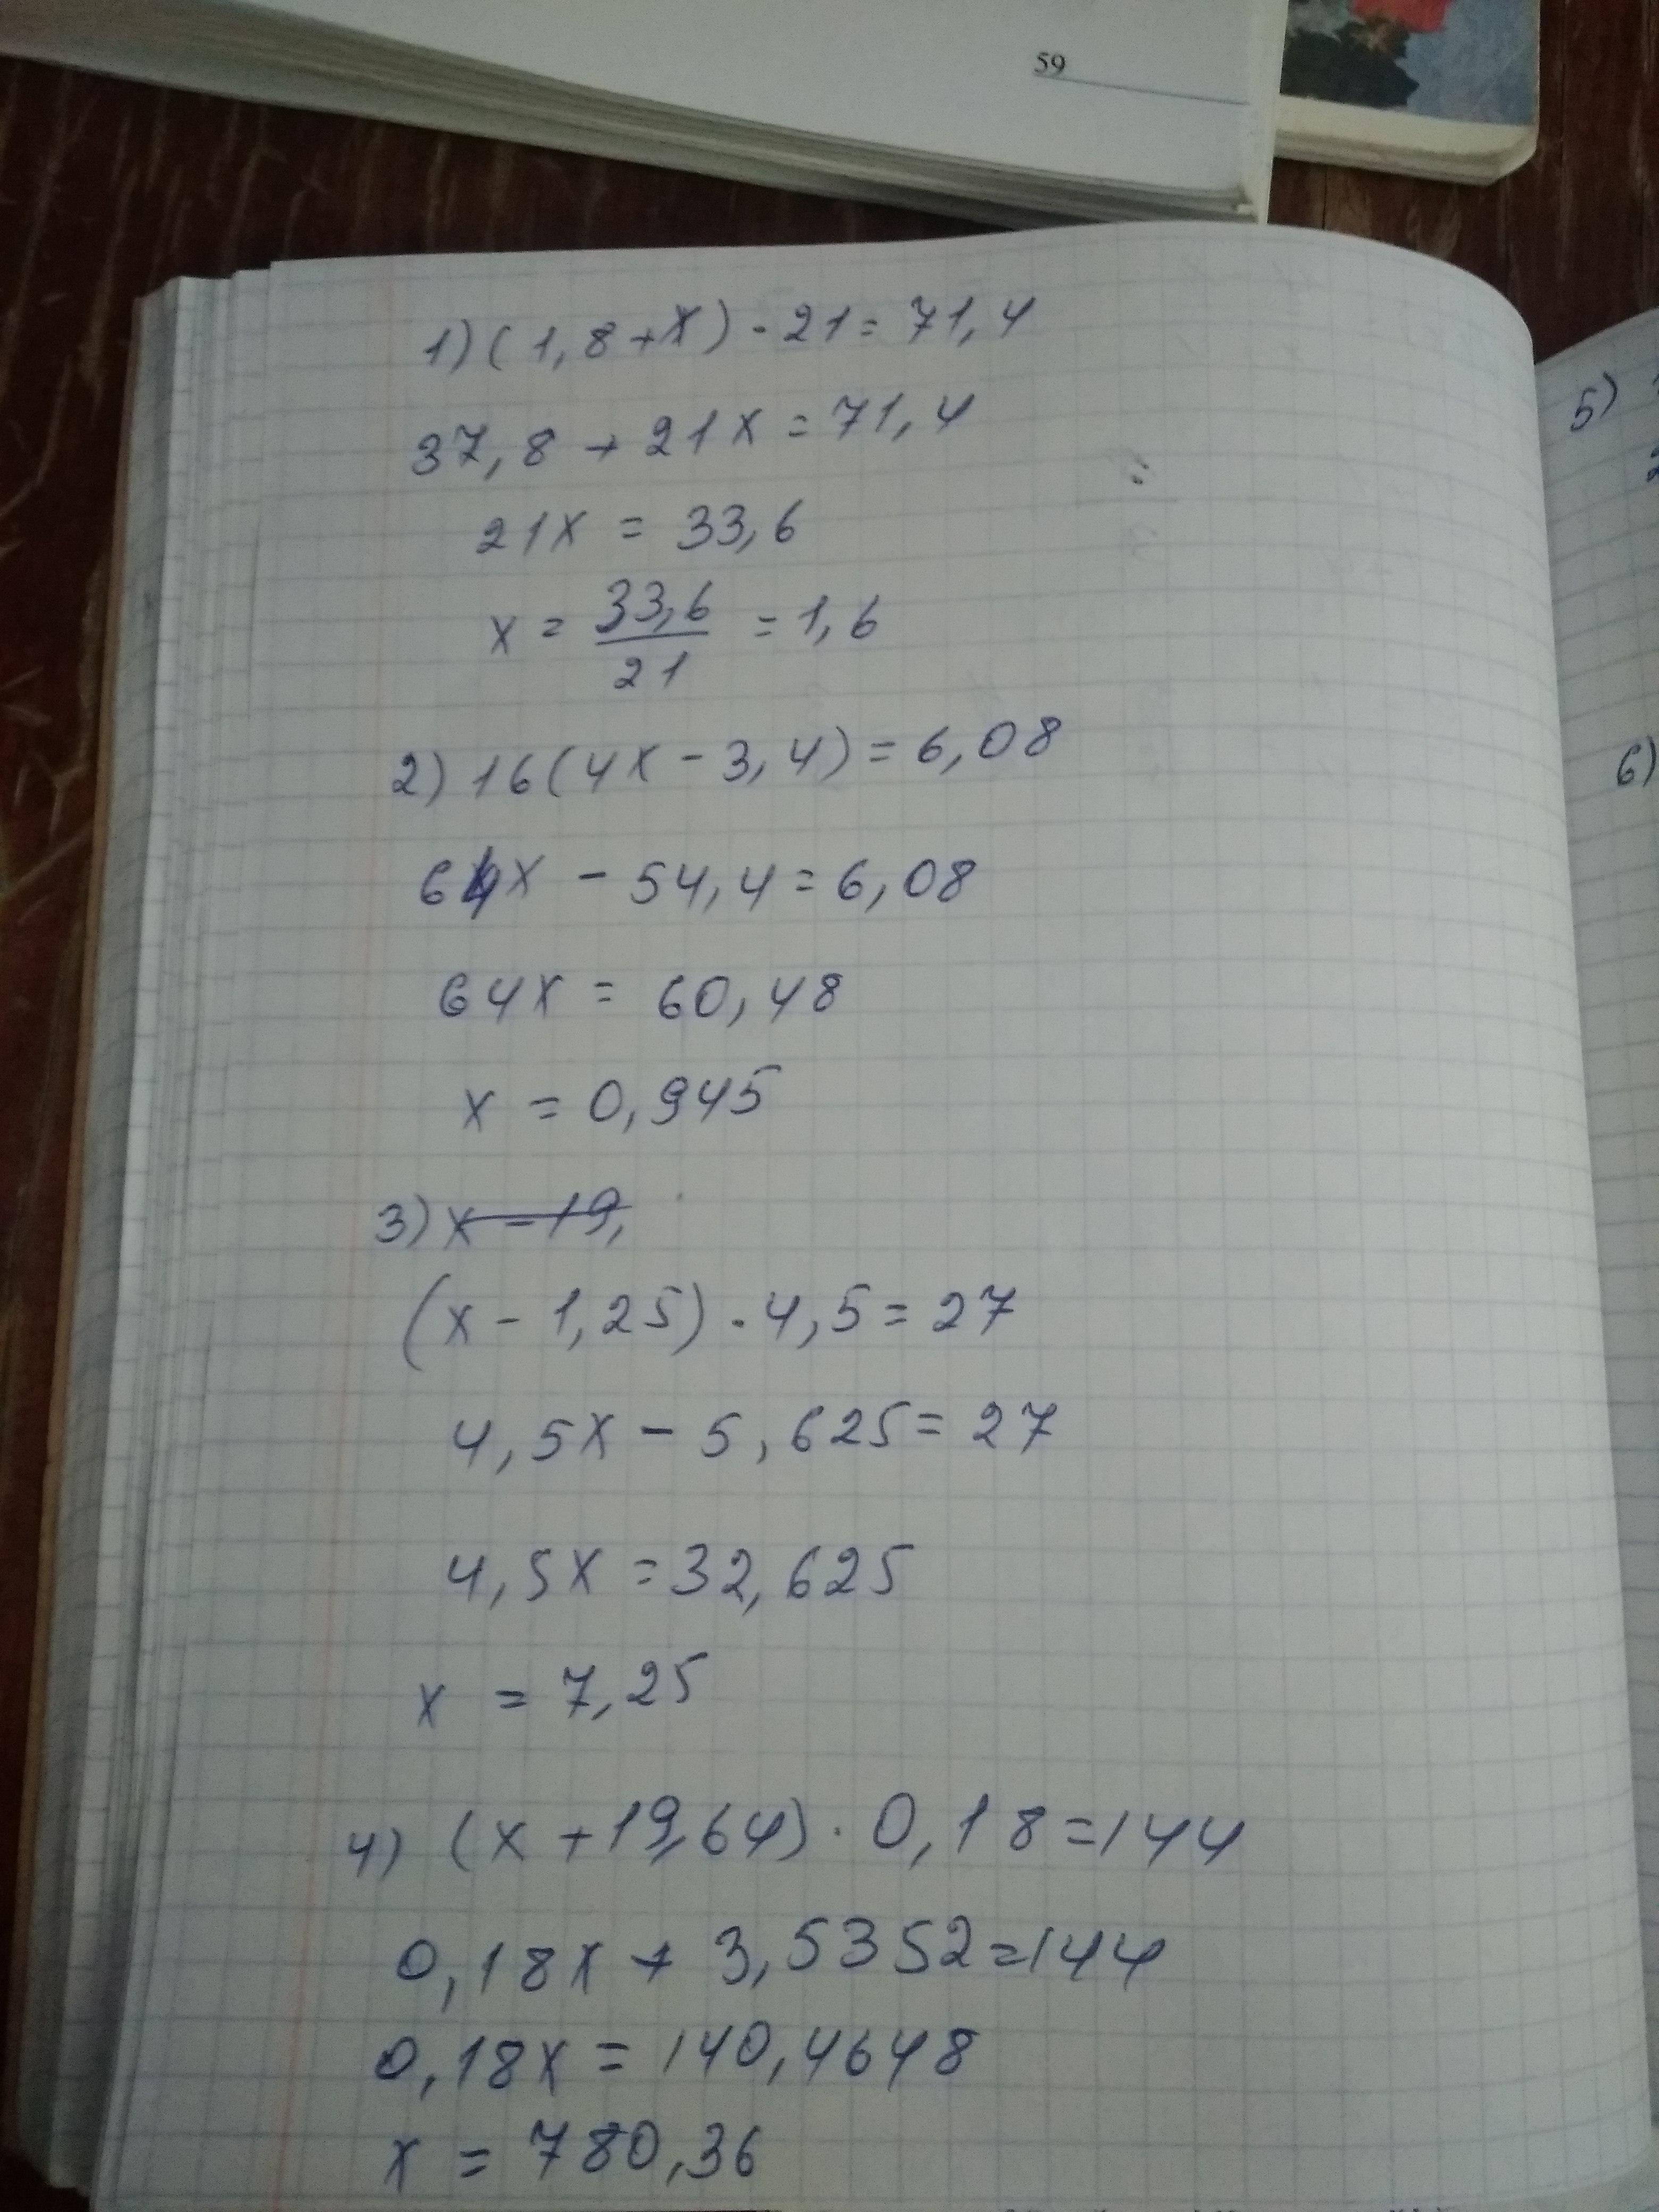 59
1) (1,8+x) · 21 = 71,4
37,8 + 21x = 71,4
21x = 33,6
x = 33,6/21 = 1,6
2) 16(4x - 3,4) = 6,08
64x - 54,4 = 6,08
64x = 60,48
x = 0,945
3) x - 19,
(x - 1,25) · 4,5 = 27
4,5x - 5,625 = 27
4,5x = 32,625
x = 7,25
4) (x + 19,64) · 0,18 = 144
0,18x + 3,5352 = 144
0,18x = 140,4648
x = 780,36
5)
6)